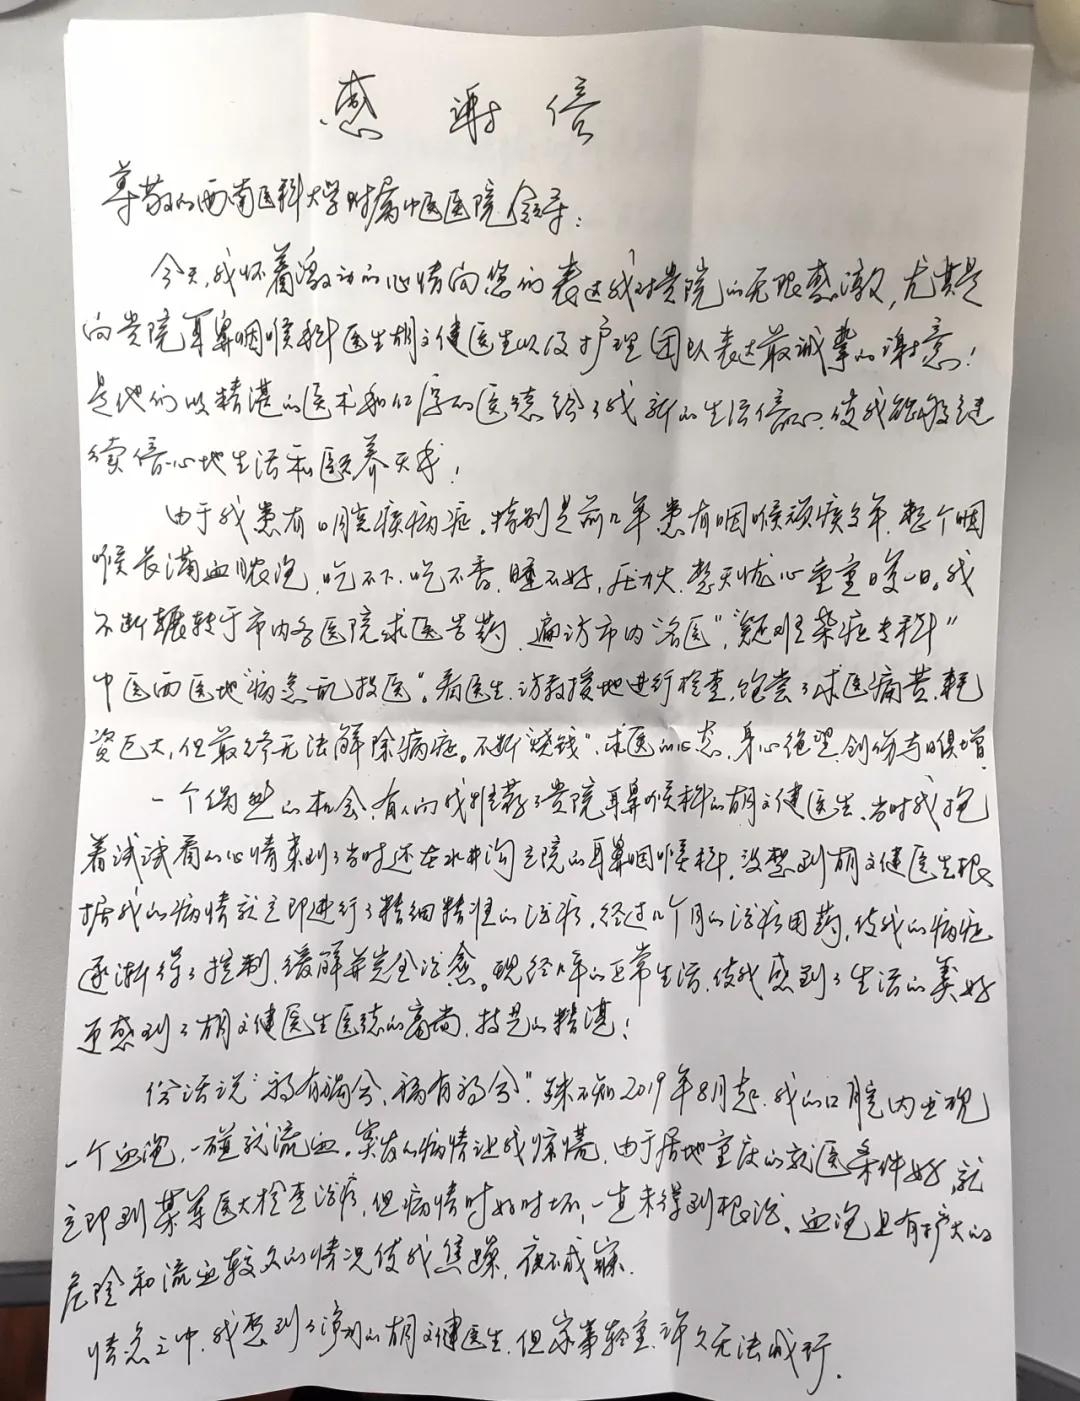 感谢信
尊敬的西南医科大学附属中医医院领导：
今天，我怀着激动的心情向您们表达我对贵院的无限感激，尤其是
向贵院耳鼻咽喉科医生胡文健医生以及护理团队表达最诚挚的谢意！
是他们以精湛的医术和仁厚的医德给了我新的生活信心，使我能够继
续信心地生活和颐养天年！
由于我患有口腔疾病症，特别是前几年患有咽喉顽疾多年，整个咽
喉长满血脓泡，吃不下、吃不香，睡不好，压力大，整天忧心重重日复一日。我
不断辗转于市内各医院求医苦药，遍访市内“名医”，“疑难杂症专科”
中医西医地“病急乱投医”。看医生、访教授地进行检查，饱尝了求医痛苦，耗
资巨大，但最终无法解除病症。不断“烧钱”，求医的心态，身心绝望，创伤与日俱增，
一个偶然的机会，有人向我推荐了贵院耳鼻喉科的胡文健医生，当时我抱
着试试看的心情来到了当时还在水井沟主院的耳鼻咽喉科，没想到胡文健医生根
据我的病情就立即进行了精细精准的治疗，经过几个月的治疗用药，使我的病症
逐渐得了控制，缓解并完全治愈。现经几年的正常生活，使我感到了生活的美好
更感到了胡文健医生医德的高尚，技艺的精湛！
俗话说“福有祸兮，祸有福兮”。殊不知2019年8月起，我的口腔内出现
一个血泡，一碰就流血。突发的病情让我惊慌，由于居地重庆的就医条件好，就
立即到某军医大检查治疗，但病情时好时坏，一直未得到根治。血泡且有扩大的
危险和流血较多的情况使我焦躁，夜不成寐。
情急之中，我想到了泸州的胡文健医生，但家事轻重，许久无法成行。